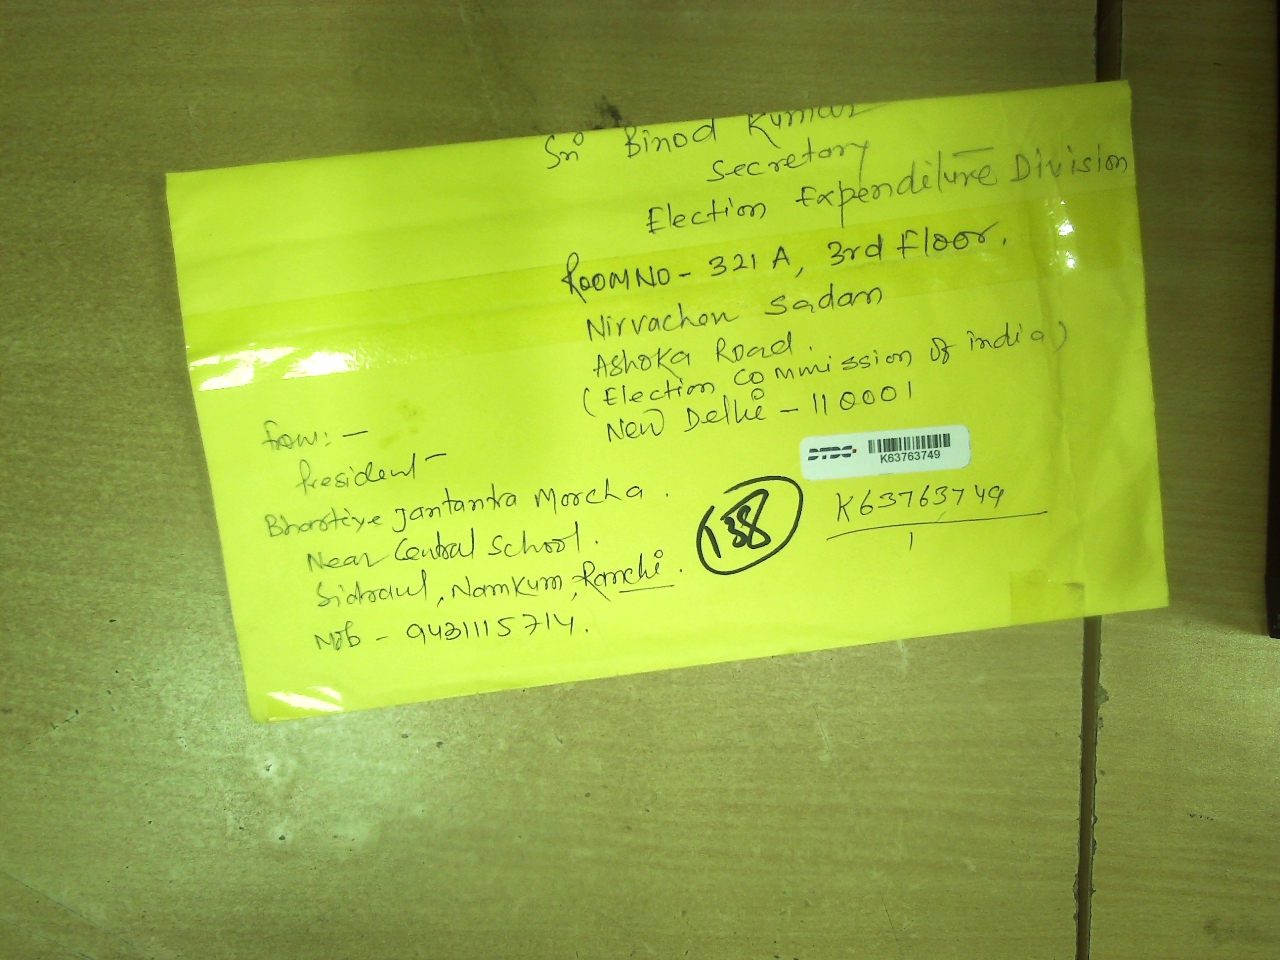 Sri Binod Kumar
Secretory
Election Expenditure Division
Room No - 321 A, 3rd Floor.
Nirvachan Sadan
Ashoka Road.
(Election Commission of india)
New Delhi - 110001
From: -
President -
Bhartiye Jantantra Morcha.
Near Central School.
Sidraul, Namkum, Ranchi.
Mob - 9431115714.
DTDC
K63763749
138
K63763749
1